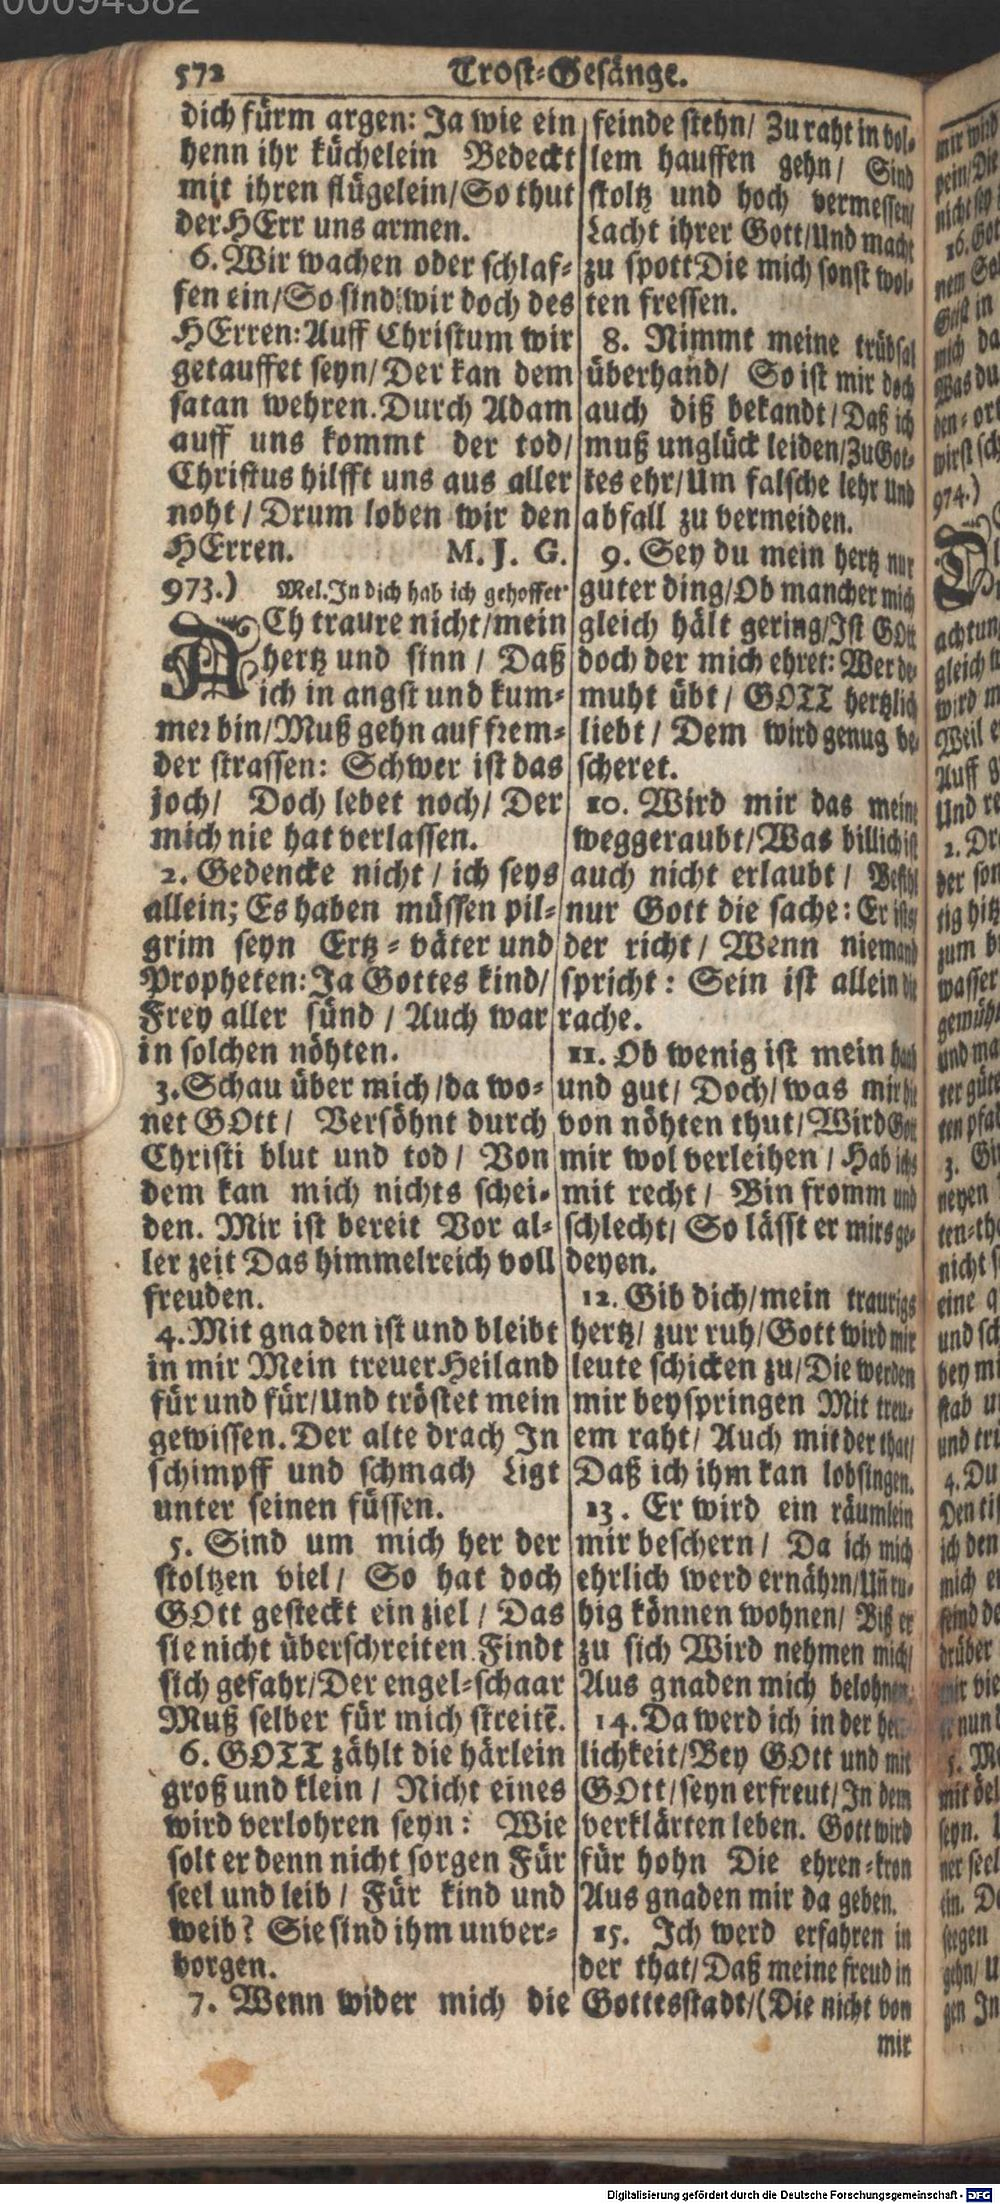 572 Trost-Gesänge.
dich fürm argen: Ja wie ein
henn ihr küchelein Bedeckt
mit ihren flügelein/So thut
der HErr uns armen.
6. Wir wachen oder schlaf-
fen ein/So sind wir doch des
HErren: Auff Christum wir
getauffet seyn/Der kan dem
satan wehren. Durch Adam
auff uns kommt der tod/
Christus hilfft uns aus aller
noht/Drum loben wir den
HErren. M. J. G.
973.) Mel. In dich hab ich gehoffet
ACh traure nicht/mein
hertz und sinn/Daß
ich in angst und kum-
mer bin/Muß gehn auf frem-
der strassen: Schwer ist das
joch/ Doch lebet noch/ Der
mich nie hat verlassen.
2. Gedencke nicht/ich seys
allein; Es haben müssen pil-
grim seyn Ertz-väter und
Propheten: Ja Gottes kind/
Frey aller sünd/Auch war
in solchen nöhten.
3. Schau über mich/da wo-
net GOtt/ Versöhnt durch
Christi blut und tod/ Von
dem kan mich nichts schei-
den. Mir ist bereit Vor al-
ler zeit Das himmelreich voll
freuden.
4. Mit gnaden ist und bleibt
in mir Mein treuer Heiland
für und für/Und tröstet mein
gewissen. Der alte drach In
schimpff und schmach Ligt
unter seinen füssen.
5. Sind um mich her der
stoltzen viel/ So hat doch
GOtt gesteckt ein ziel/Das
sie nicht überschreiten. Findt
sich gefahr/Der engel-schaar
Muß selber für mich streitẽ.
6. GOTT zählt die härlein
groß und klein/ Nicht eines
wird verlohren seyn: Wie
solt er denn nicht sorgen Für
seel und leib/ Für kind und
weib? Sie sind ihm unver-
borgen.
7. Wenn wider mich die
feinde stehn/ Zu raht in vol-
lem hauffen gehn/ Sind
stoltz und hoch vermessen/
Lacht ihrer Gott/Und macht
zu spott Die mich sonst wol-
ten fressen.
8. Nimmt meine trübsal
überhand/ So ist mir doch
auch diß bekandt/Daß ich
muß unglück leiden/Zu Got-
tes ehr/Um falsche lehr und
abfall zu vermeiden.
9. Sey du mein hertz nur
guter ding/Ob mancher mich
gleich hält gering/Ist GOtt
doch der mich ehret: Wer de-
muht übt/ GOTT hertzlich
liebt/ Dem wird genug be-
scheret.
10. Wird mir das meine
weggeraubt/Was billich ist
auch nicht erlaubt/ Befihl
nur Gott die sache: Er ists/
der richt/ Wenn niemand
spricht: Sein ist allein die
rache.
11. Ob wenig ist mein haab
und gut/ Doch/was mir hie
von nöhten thut/Wird Gott
mir wol verleihen/Hab ichs
mit recht/ Bin fromm und
schlecht/ So lässt er mirs ge-
deyen.
12. Gib dich/mein traurigs
hertz/zur ruh/Gott wird mir
leute schicken zu/Die werden
mir beyspringen Mit treu-
em raht/ Auch mit der that/
Daß ich ihm kan lobsingen.
13. Er wird ein räumlein
mir beschern/ Da ich mich
ehrlich werd ernährn/Uñ ru-
hig können wohnen/ Biß er
zu sich Wird nehmen mich/
Aus gnaden mich belohnen.
14. Da werd ich in der herr-
lichkeit/Bey GOtt und mit
GOtt/seyn erfreut/In dem
verklärten leben. Gott wird
für hohn Die ehren-kron
Aus gnaden mir da geben.
15. Ich werd erfahren in
der that/Daß meine freud in
Gottesstadt/(Die nicht von
mir
Digitalisierung gefördert durch die Deutsche Forschungsgemeinschaft - DFG